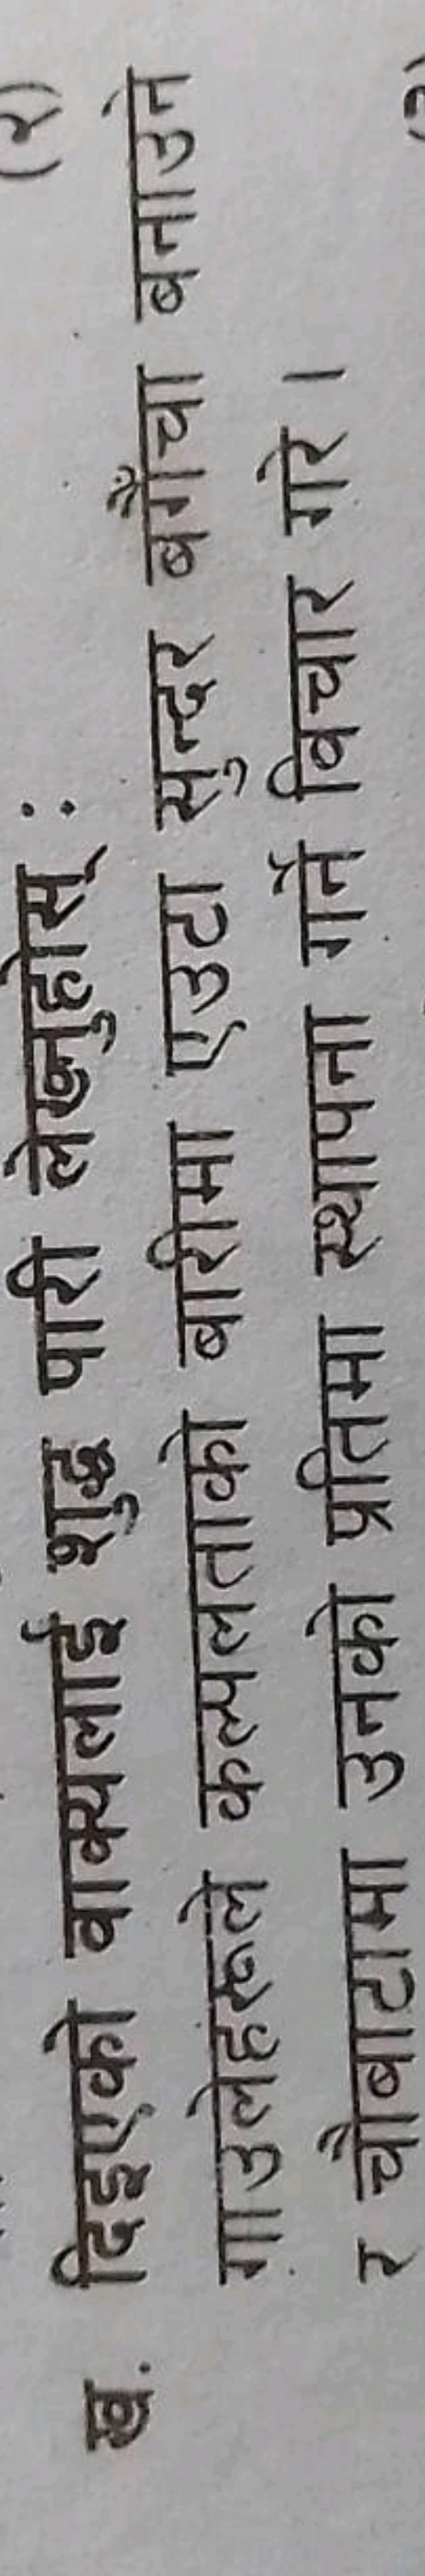 (२)
ख. दिइएको वाक्यलाई शुद्ध पारी लेख्नुहोस् :
गाउलेहरूले कल्पलताको बारीमा एउटा सुन्दर बगैँचा बनाउने
र चौबाटामा उनको प्रतिमा स्थापना गर्ने विचार गरे ।